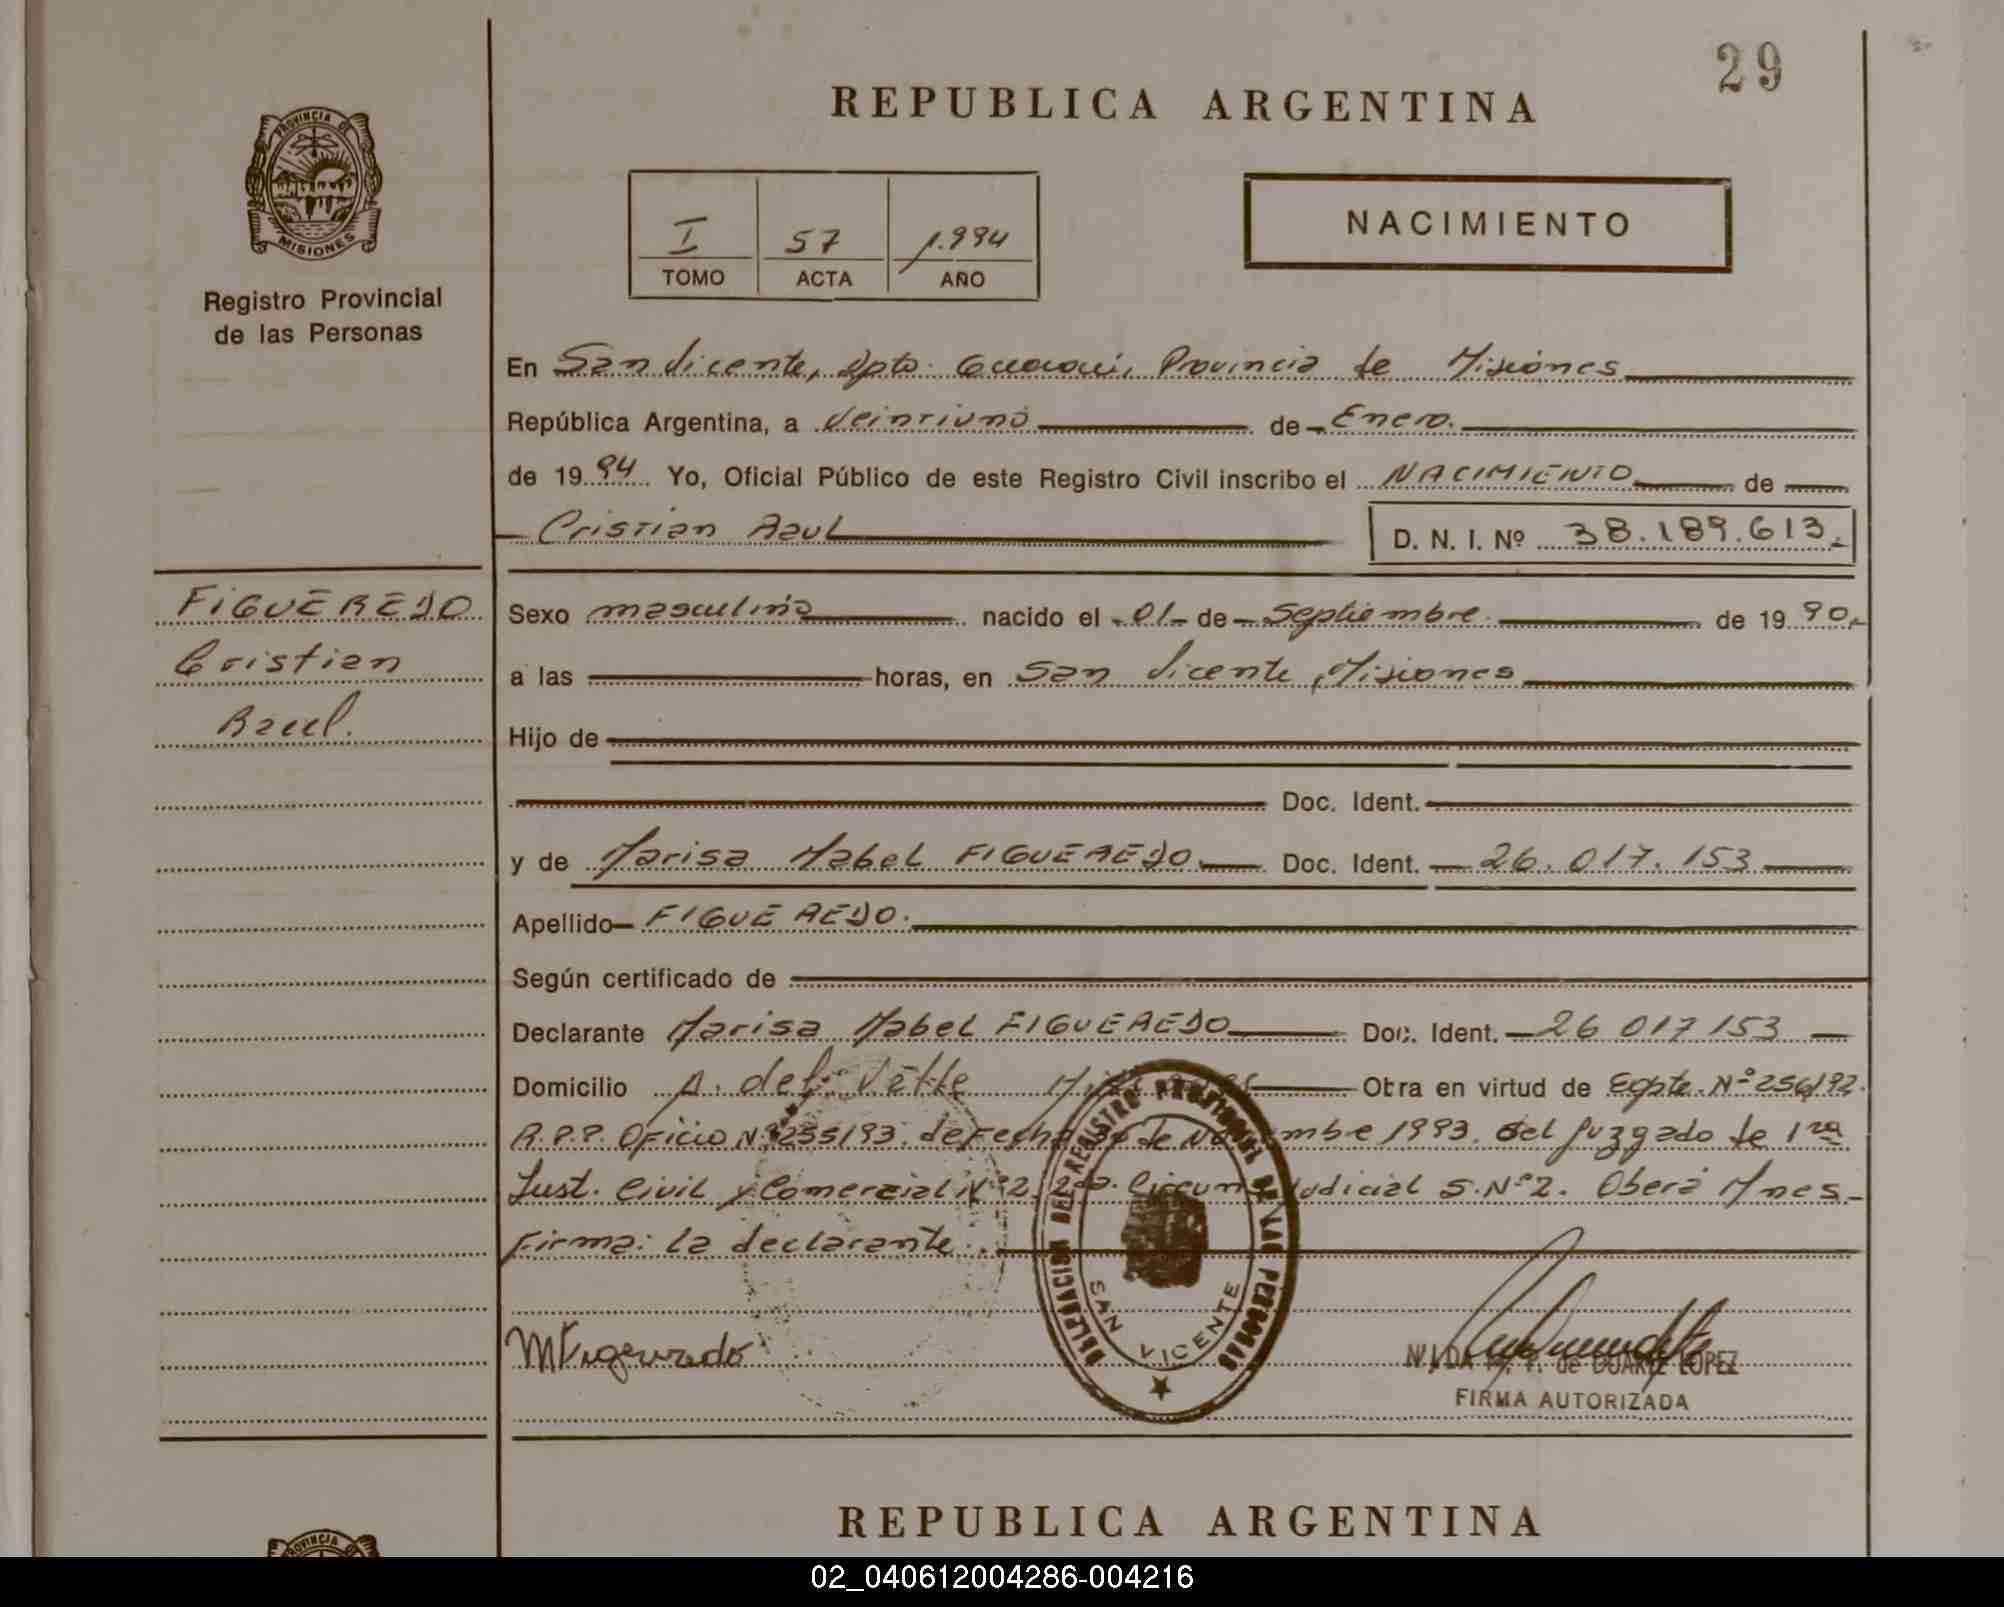 29
REPUBLICA ARGENTINA
PROVINCIA DE MISIONES
Registro Provincial
de las Personas
I 57 1.994
TOMO ACTA AÑO
NACIMIENTO
En San Vicente, Dpto. Guaraní, Provincia de Misiones
República Argentina, a Veintiuno de Enero.
de 1994 Yo, Oficial Público de este Registro Civil inscribo el NACIMIENTO de
Cristian Raul D. N. I. Nº 38.189.613.
FIGUEREDO
Cristian
Raul.
Sexo masculino nacido el 01 de Septiembre de 1990.
a las horas, en San Vicente, Misiones
Hijo de
Doc. Ident.
y de Marisa Mabel FIGUEREDO Doc. Ident. 26.017.153
Apellido FIGUEREDO.
Según certificado de
Declarante Marisa Mabel FIGUEREDO Doc. Ident. 26 017 153
Domicilio A. del Valle Misiones Otra en virtud de Expte. Nº 256/92.
R.P.P. Oficio Nº 255/93. de Fecha 30 de Noviembre 1993. del Juzgado de 1ra
Inst. Civil y Comercial Nº 2, 2da. Circuns. Judicial S. Nº 2. Oberá Mnes.
Firma: la declarante.
DELEGACION DEL REGISTRO PROVINCIAL DE LAS PERSONAS
SAN VICENTE
MFigueredo
DE DUARTE LOPEZ
FIRMA AUTORIZADA
REPUBLICA ARGENTINA
PROVINCIA DE
02_040612004286-004216